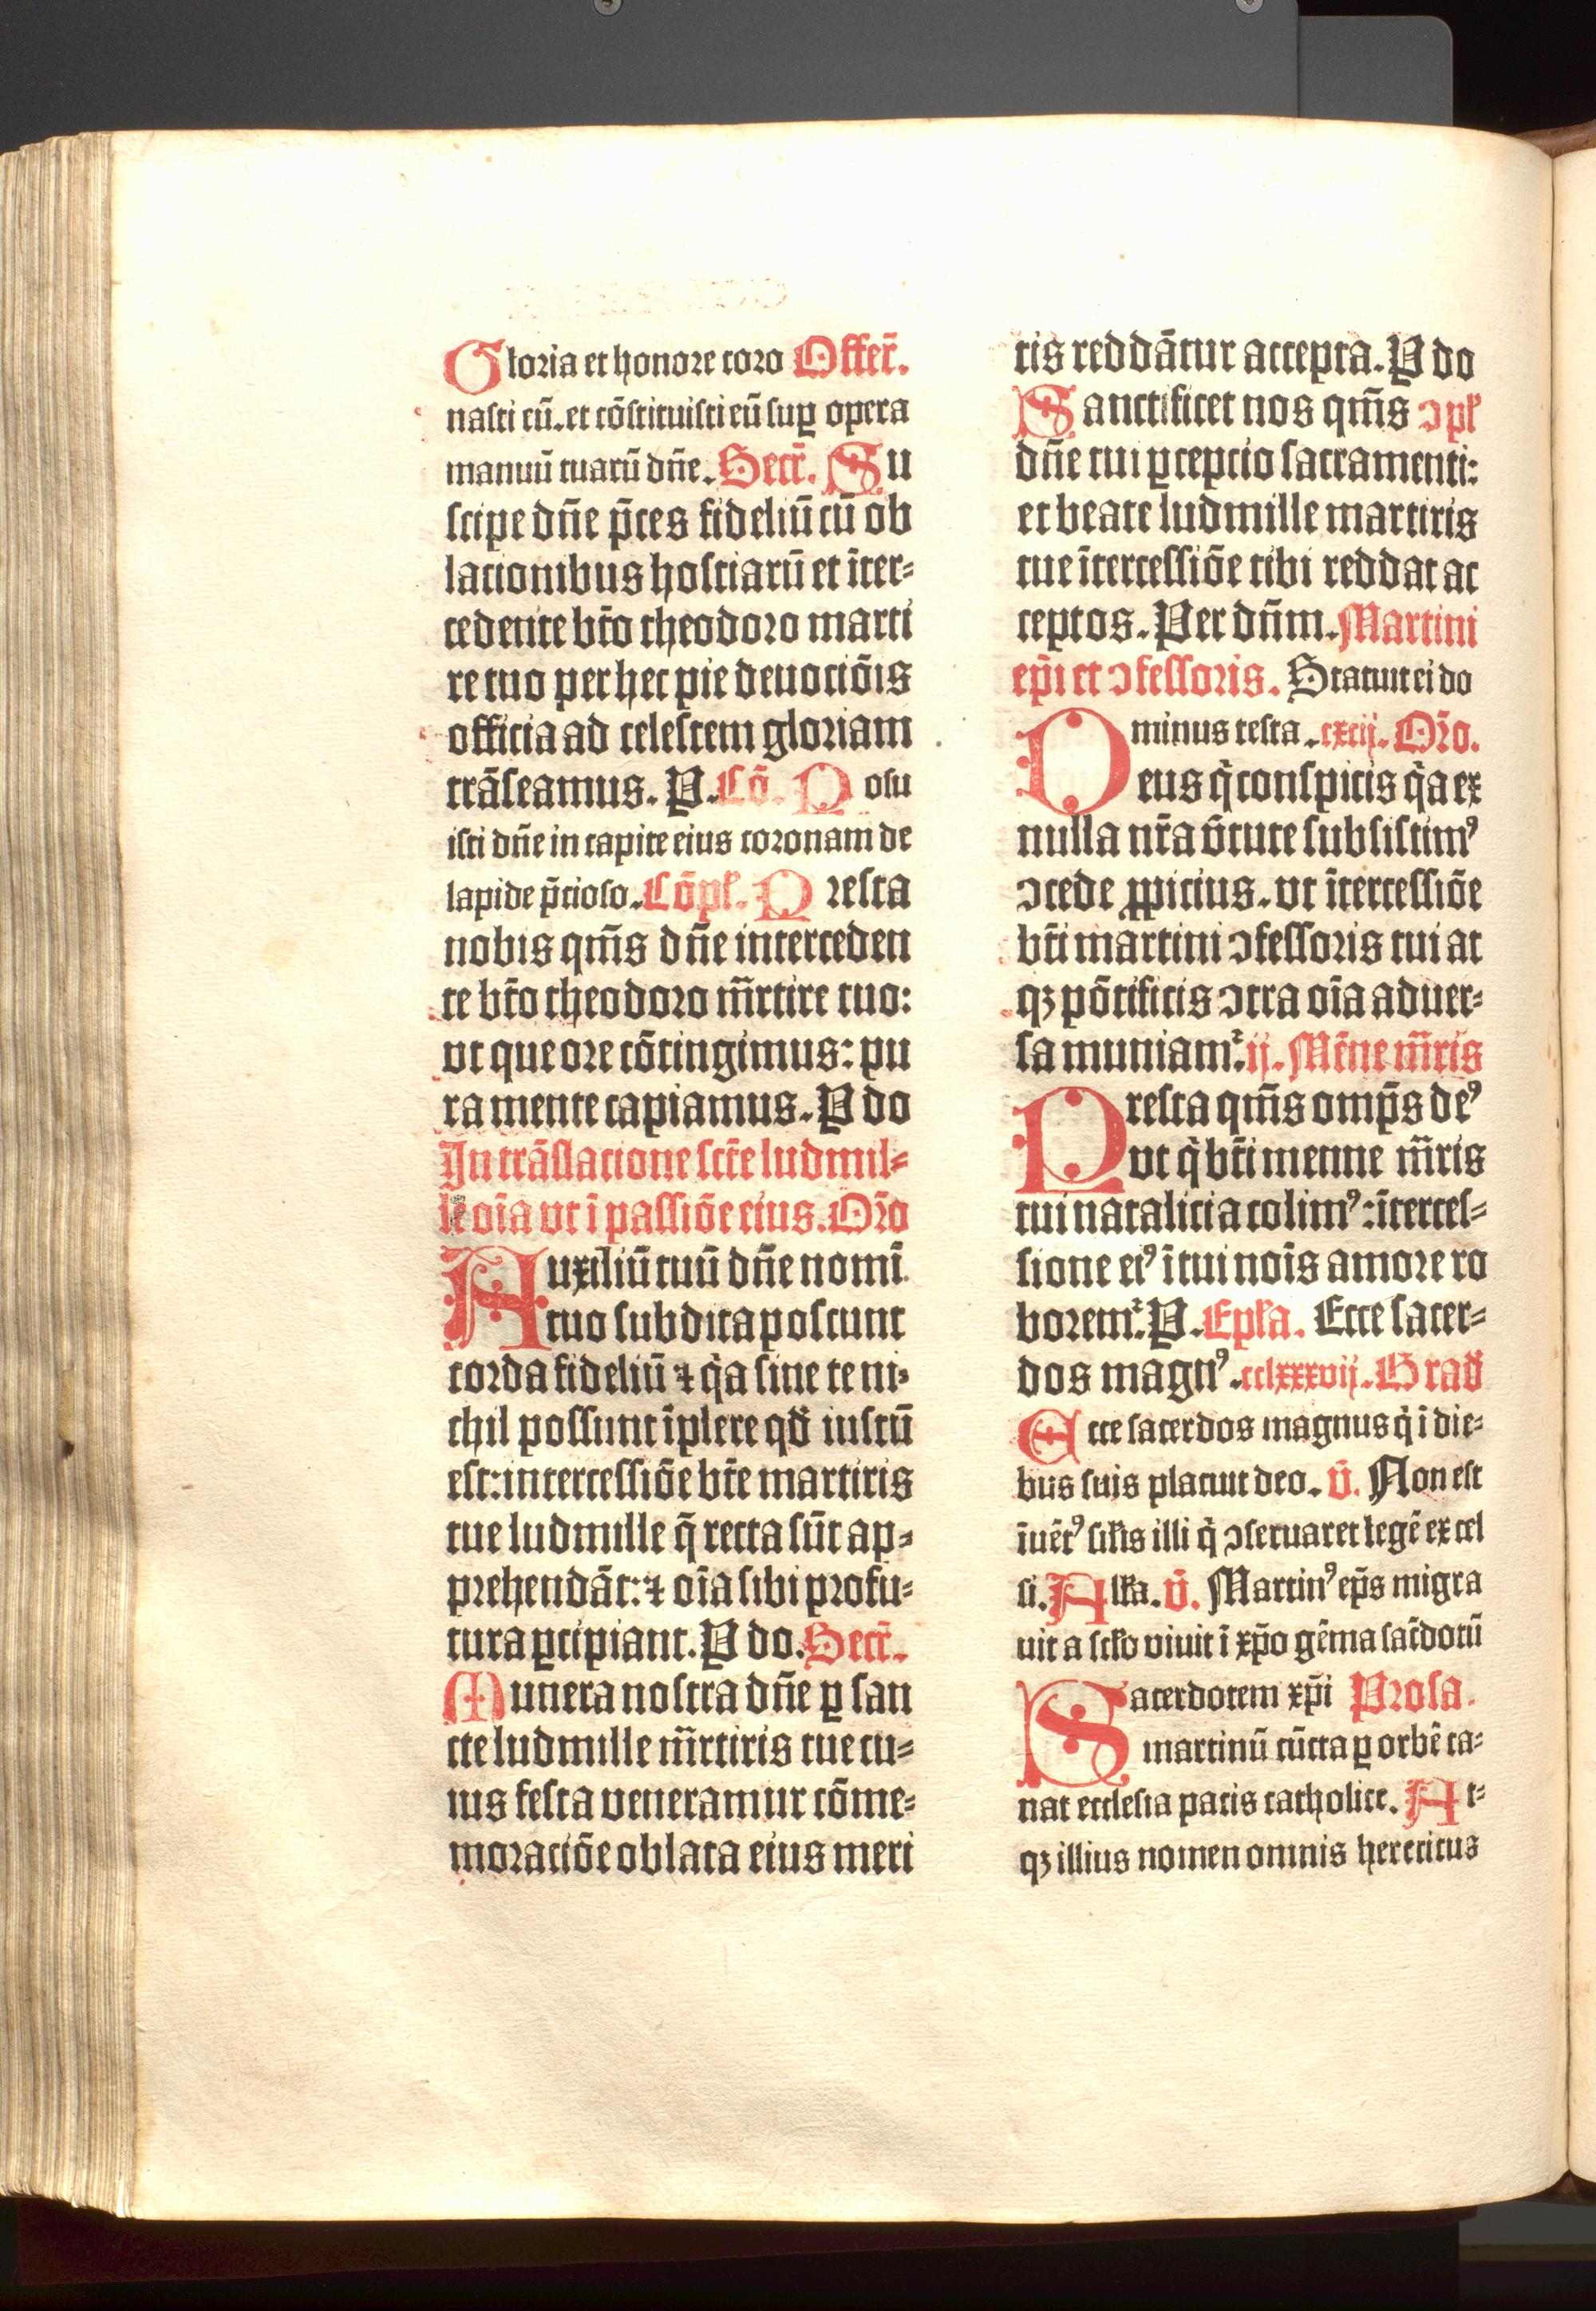 Gloria et honore coro Offer̄.
nasti eū. et cōstituisti eū sup̱ opera
manuū tuarū dn̄e. Secr̄. Su
scipe dn̄e p̄ces fideliū cū ob
lacionibus hostiarū et īter⸗
cedente bt̄o theodoro marti
re tuo per hec pie deuociōis
officia ad celestem gloriam
trāseamus. P. Cō. Posu
isti dn̄e in capite eius coronam de
lapide p̄cioso. Cōpl̄. Presta
nobis qm̄s dn̄e interceden
te bt̄o theodoro m̄rtire tuo:
vt que ore cōtingimus: pu
ra mente capiamus. P do
In trāslacione sct̄e ludmil⸗
le oīa vt ī passiōe eius. Or̄o
Auxiliū tuū dn̄e nomī
tuo subdita poscunt
corda fideliū ⁊ q̄a sine te ni⸗
chil possunt īplere qd̄ iustū
est: intercessiōe bt̄e martiris
tue ludmille q̄ recta sūt ap⸗
prehendāt: ⁊ oīa sibi profu⸗
tura p̱cipiant. P do. Secr̄.
Munera nostra dn̄e p̱ san
cte ludmille m̄rtiris tue cu⸗
ius festa veneramur cōme⸗
moraciōe oblata eius meri
tis reddātur accepta. P do
Sanctificet nos qm̄s ↄpl̄
dn̄e tui p̱cepcio sacramenti:
et beate ludmille martiris
tue ītercessiōe tibi reddat ac
ceptos. Per dn̄m. Martini
ep̄i et ↄfessoris. Statuit ei do
minus testa. cxcij. Or̄o.
Deus q̄ conspicis q̄a ex
nulla nr̄a v̄tute subsistimꝰ
ↄcede ꝓpicius. vt ītercessiōe
bt̄i martini ↄfessoris tui at
qꝫ pōtificis ↄtra oīa aduer⸗
sa muniam᷑. ij. Mēne m̄ris
Presta qm̄s omp̄s deꝰ
vt q̄ bt̄i menne m̄ris
tui natalicia colimꝰ: īterces⸗
sione eiꝰ ī tui noīs amore ro
borem᷑. P. Epl̄a. Ecce sacer⸗
dos magnꝰ. cclxxxvij. Grad̄
Ecce sacerdos magnus q̄ ī die⸗
bus suis placuit deo. v̄. Non est
īuētꝰ sil̄is illi q̄ ↄseruaret legē excel
si. All̄a. v̄. Martinꝰ ep̄s migra
uit a scl̄o viuit ī xp̄o gēma sac̄dotū
Sacerdotem xp̄i Prosa.
martinū cūcta p̱ orbē ca⸗
nat ecclesia pacis catholice. At⸗
qꝫ illius nomen omnis hereticus